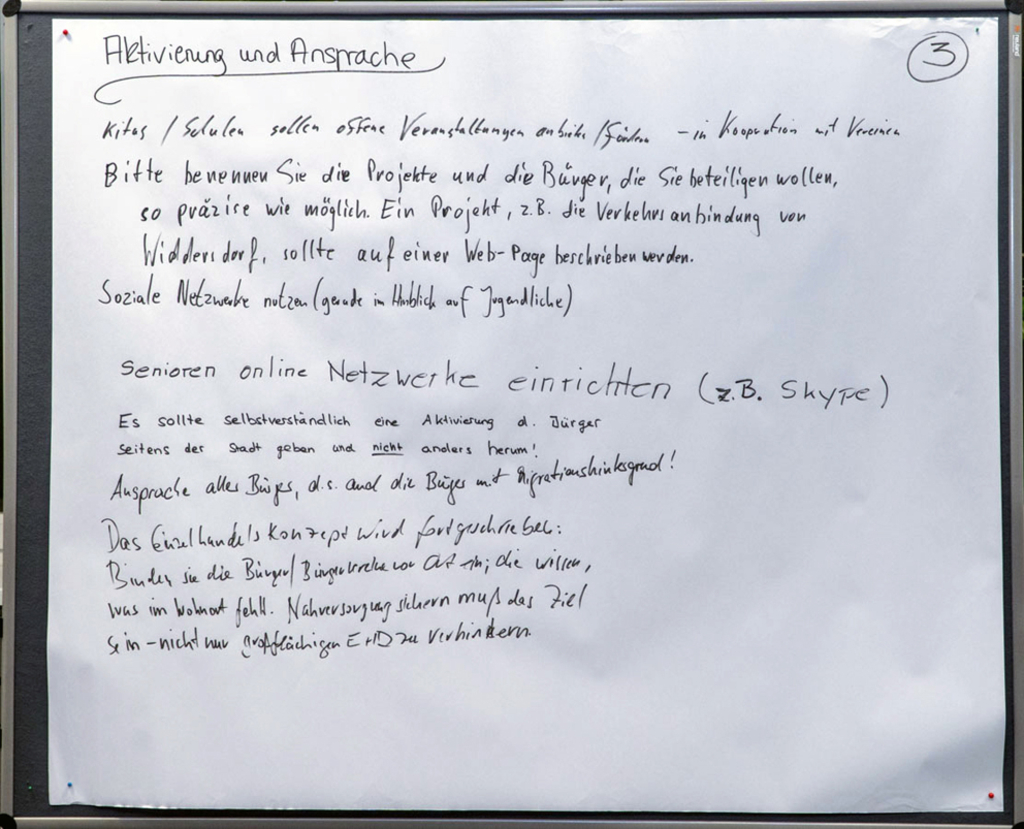 Aktivierung und Ansprache
3
Kitas / Schulen sollen offene Veranstaltungen anbieten / fördern - in Kooperation mit Vereinen
Bitte benennen Sie die Projekte und die Bürger, die Sie beteiligen wollen,
so präzise wie möglich. Ein Projekt, z.B. die Verkehrsanbindung von
Widdersdorf, sollte auf einer Web-Page beschrieben werden.
Soziale Netzwerke nutzen (gerade im Hinblick auf Jugendliche)
Senioren online Netzwerke einrichten (z.B. Skype)
Es sollte selbstverständlich eine Aktivierung d. Bürger
seitens der Stadt geben und nicht anders herum!
Ansprache aller Bürger, d.s. auch die Bürger mit Migrationshintergrund!
Das Einzelhandelskonzept wird fortgeschrieben:
Binden sie die Bürger/Bürgervereine vor Ort ein; die wissen,
was im Wohnort fehlt. Nahversorgung sichern muß das Ziel
sein - nicht nur großflächigen EHD zu verhindern.